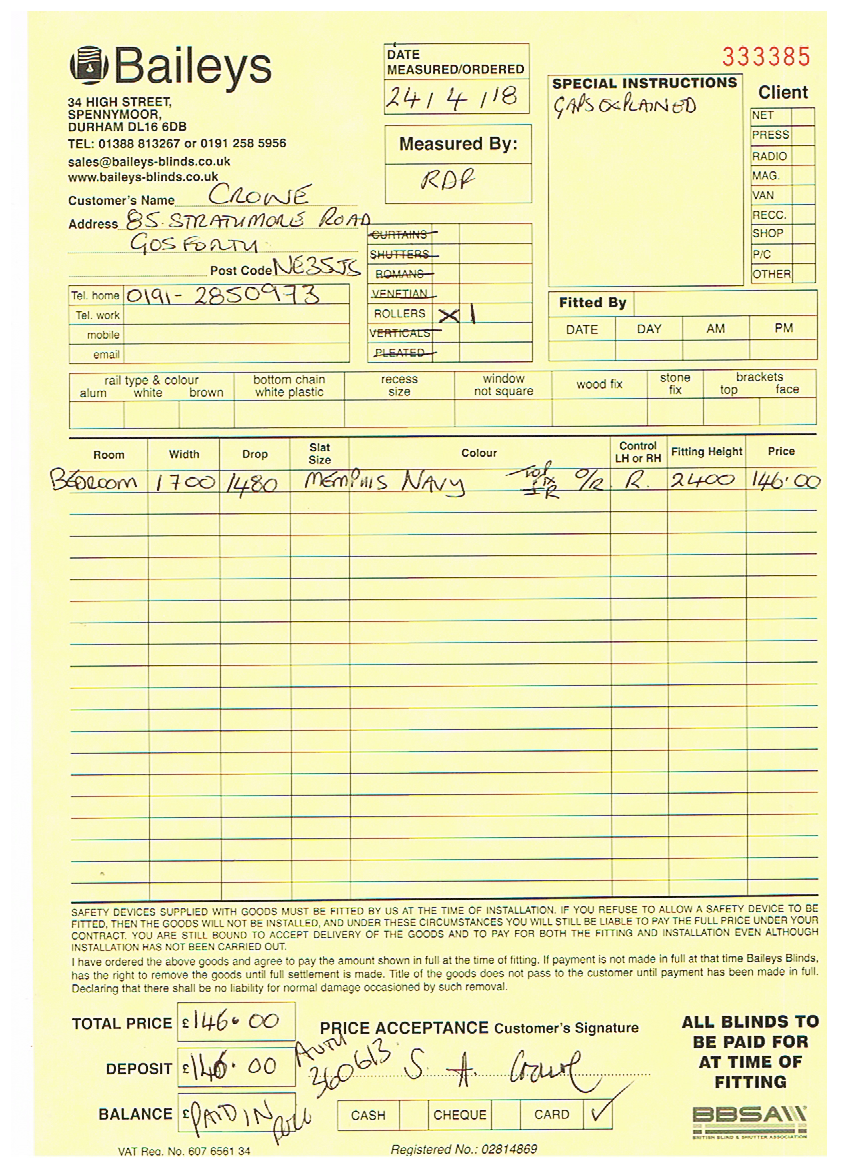 Baileys
34 HIGH STREET,
SPENNYMOOR,
DURHAM DL16 6DB
TEL: 01388 813267 or 0191 258 5956
sales@baileys-blinds.co.uk
www.baileys-blinds.co.uk
DATE
MEASURED/ORDERED
24/4/18
Measured By:
RDP
333385
SPECIAL INSTRUCTIONS
GAPS EXPLAINED
Client
NET
PRESS
RADIO
MAG.
VAN
RECC.
SHOP
P/C
OTHER
Customer's Name CROWE
Address 85 STRATHMORE ROAD
GOSFORTH
Post Code NE35JS
Tel. home 0191-2850973
Tel. work
mobile
email
CURTAINS
SHUTTERS
ROMANS
VENETIAN
ROLLERS X 1
VERTICALS
PLEATED
Fitted By
DATE DAY AM PM
rail type & colour bottom chain recess window wood fix stone brackets
alum white brown white plastic size not square fix top face
Room Width Drop Slat Size Colour Control LH or RH Fitting Height Price
BEDROOM 1700 1480 MEMPHIS NAVY TOP FIX O/R R. 2400 146.00
SAFETY DEVICES SUPPLIED WITH GOODS MUST BE FITTED BY US AT THE TIME OF INSTALLATION. IF YOU REFUSE TO ALLOW A SAFETY DEVICE TO BE
FITTED, THEN THE GOODS WILL NOT BE INSTALLED, AND UNDER THESE CIRCUMSTANCES YOU WILL STILL BE LIABLE TO PAY THE FULL PRICE UNDER YOUR
CONTRACT. YOU ARE STILL BOUND TO ACCEPT DELIVERY OF THE GOODS AND TO PAY FOR BOTH THE FITTING AND INSTALLATION EVEN ALTHOUGH
INSTALLATION HAS NOT BEEN CARRIED OUT.
I have ordered the above goods and agree to pay the amount shown in full at the time of fitting. If payment is not made in full at that time Baileys Blinds,
has the right to remove the goods until full settlement is made. Title of the goods does not pass to the customer until payment has been made in full.
Declaring that there shall be no liability for normal damage occasioned by such removal.
TOTAL PRICE £146.00
DEPOSIT £146.00
BALANCE £PAID IN FULL
PRICE ACCEPTANCE Customer's Signature
AUTH
360613
S. A. Crowe
CASH CHEQUE CARD ✓
ALL BLINDS TO
BE PAID FOR
AT TIME OF
FITTING
BBSA
BRITISH BLIND & SHUTTER ASSOCIATION
VAT Reg. No. 607 6561 34
Registered No.: 02814869